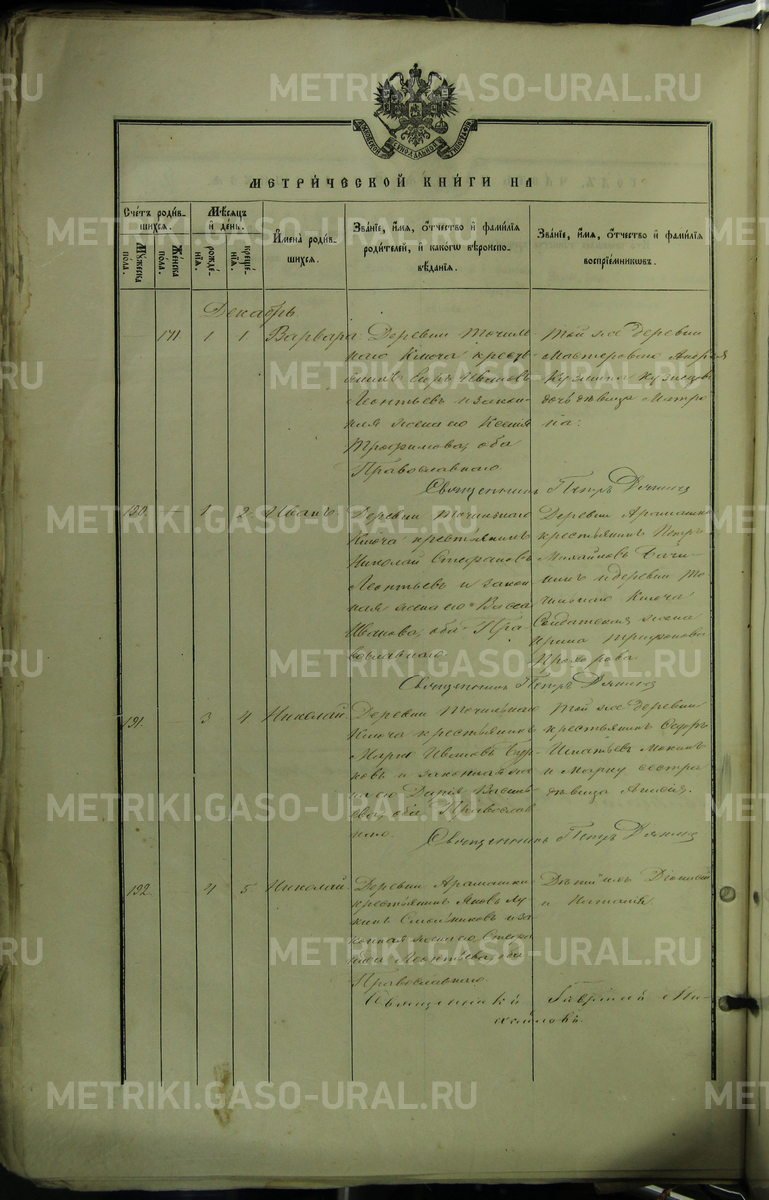 METRIKI.GASO-URAL.RU
МОСКОВСКОЙ СѴНОДАЛЬНОЙ ТИПОГРАФІИ
МЕТРИ́ЧЕСКОЙ КНИ́ГИ НА
Сче́тъ роди́в-
шихся.
Му́жеска
по́ла.
Же́нска
по́ла.
Мѣ́сяцъ
и҆ де́нь.
рожде́-
нїя.
креще́-
нїя.
И҆мена̀ роди́в-
шихся.
Зва́нїе, и҆́мя, ѻ҆́тчество и҆ фами́лїя
роди́телей, и҆ како́гѡ вѣроиспо-
вѣ́данїя.
Зва́нїе, и҆́мя, ѻ҆́тчество и҆ фами́лїя
воспрїе́мникѡвъ.
Декабрь
171 1 1 Варвара
Деревни Точиль-
наго Ключа крестья-
нинъ
Леонтьевъ и закон-
ная жена его Ксенія
Трофимова, оба
Православнаго
Той же деревни
мастероваго Андрея
Кузмина Кузнецова
дочь дѣвица Матро-
на.
Священникъ Петръ
130. — 1 2 Иванъ.
Деревни Точильнаго
Ключа крестьянинъ
Николай Стефановъ
Леонтьевъ и закон-
ная жена его Васса
Иванова, оба Пра-
вославнаго
Деревни Арамашки
крестьянинъ Петръ
Михайловъ
и деревни То-
чильнаго Ключа
Солдатская жена
Ирина Трифонова
Прохорова.
Священникъ Петръ
131. — 3 4 Николай
Деревни Точильнаго
Ключа крестьянинъ
Иванов
и законная же-
на его Дарія Василь-
ева, оба Православ-
наго
Той же деревни
крестьянинъ Ѳедоръ
Игнатьевъ Мокинъ
и Марку сестра
дѣвица
Священникъ Петръ
132. 4 5 Николай
Деревни Арамашки
крестьянинъ Яковъ Лу-
кинъ и за-
конная жена его Стефа-
нида Леонтьева, оба
Православнаго
Діонисій
и Наталія.
Священникъ Гавріилъ Ми-
хайловъ.